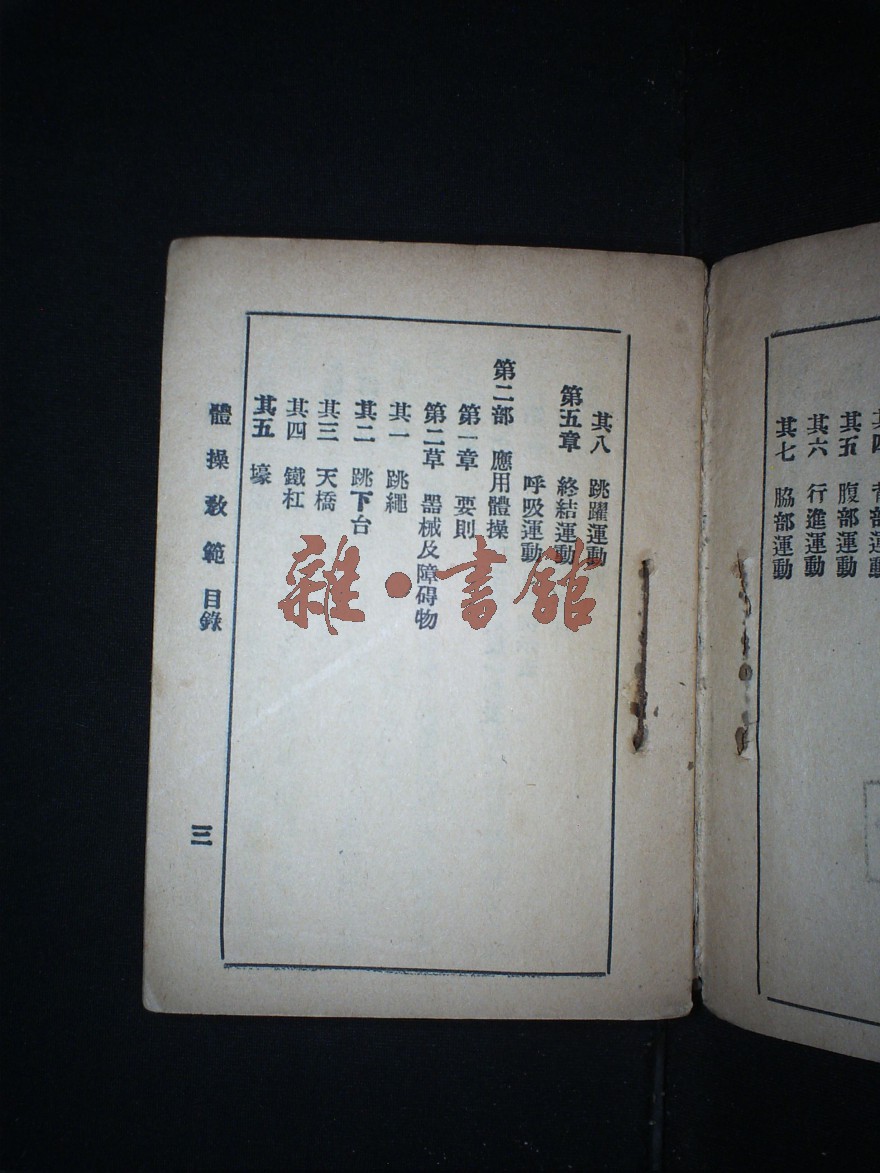 其五 腹部運動
其六 行進運動
其七 脇部運動
其八 跳躍運動
第五章 終結運動
呼吸運動
第二部 應用體操
第一章 要則
第二草 器械及障碍物
其一 跳繩
其二 跳下台
其三 天橋
其四 鐵杠
其五 壕
體操教範 目錄
三
雜·書館